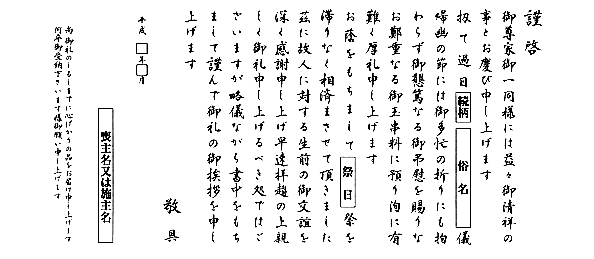 謹啓
御尊家御一同様には益々御清祥の
事とお慶び申し上げます
扨て過日 続柄 俗名 儀
帰幽の節には御多忙の折りにも拘
わらず御懇篤なる御弔慰を賜りな
お鄭重なる御玉串料に預り洵に有
難く厚礼申し上げます
お蔭をもちまして 祭日 祭を
滞りなく相済まさせて頂きました
茲に故人に対する生前の御交誼を
深く感謝申し上げ早速拝趨の上親
しく御礼申し上げるべき処ではご
さいますが略儀ながら書中をもち
まして謹んで御礼の御挨拶を申し
上げます
敬具
平成 年 月
喪主名又は施主名
尚御礼のしるしまでに心ばかりの品をお届け申し上げます
何卒御受納下さいます様御願い申し上げます